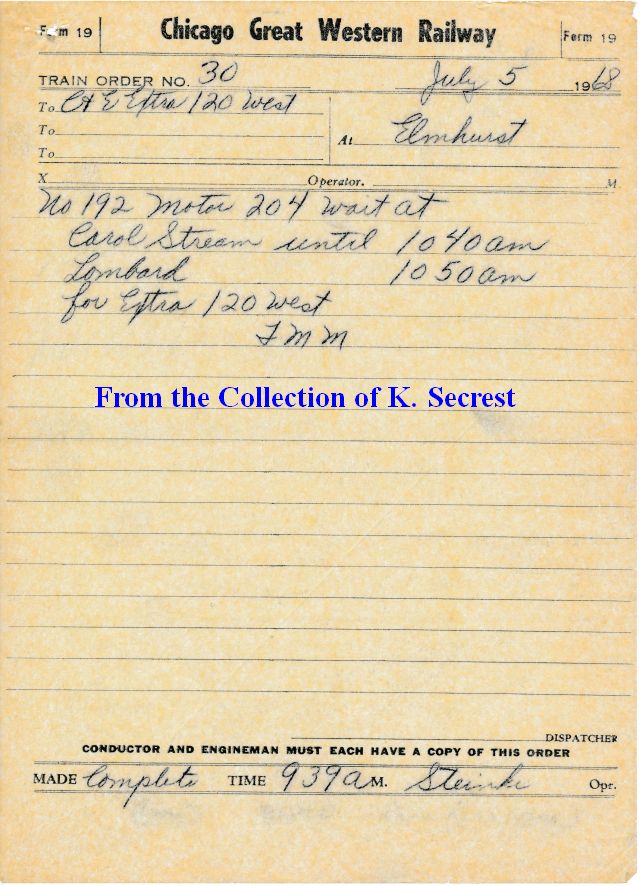 Form 19 Chicago Great Western Railway Form 19
TRAIN ORDER NO. 30 July 5 1968
To C&E Extra 120 West
To
To
At Elmhurst
X Operator. M
No 192 Motor 204 wait at
Carol Stream until 10 40 am
Lombard 10 50 am
for Extra 120 West
F M M
From the Collection of K. Secrest
DISPATCHER
CONDUCTOR AND ENGINEMAN MUST EACH HAVE A COPY OF THIS ORDER
MADE Complete TIME 939 a M. Steinke Opr.